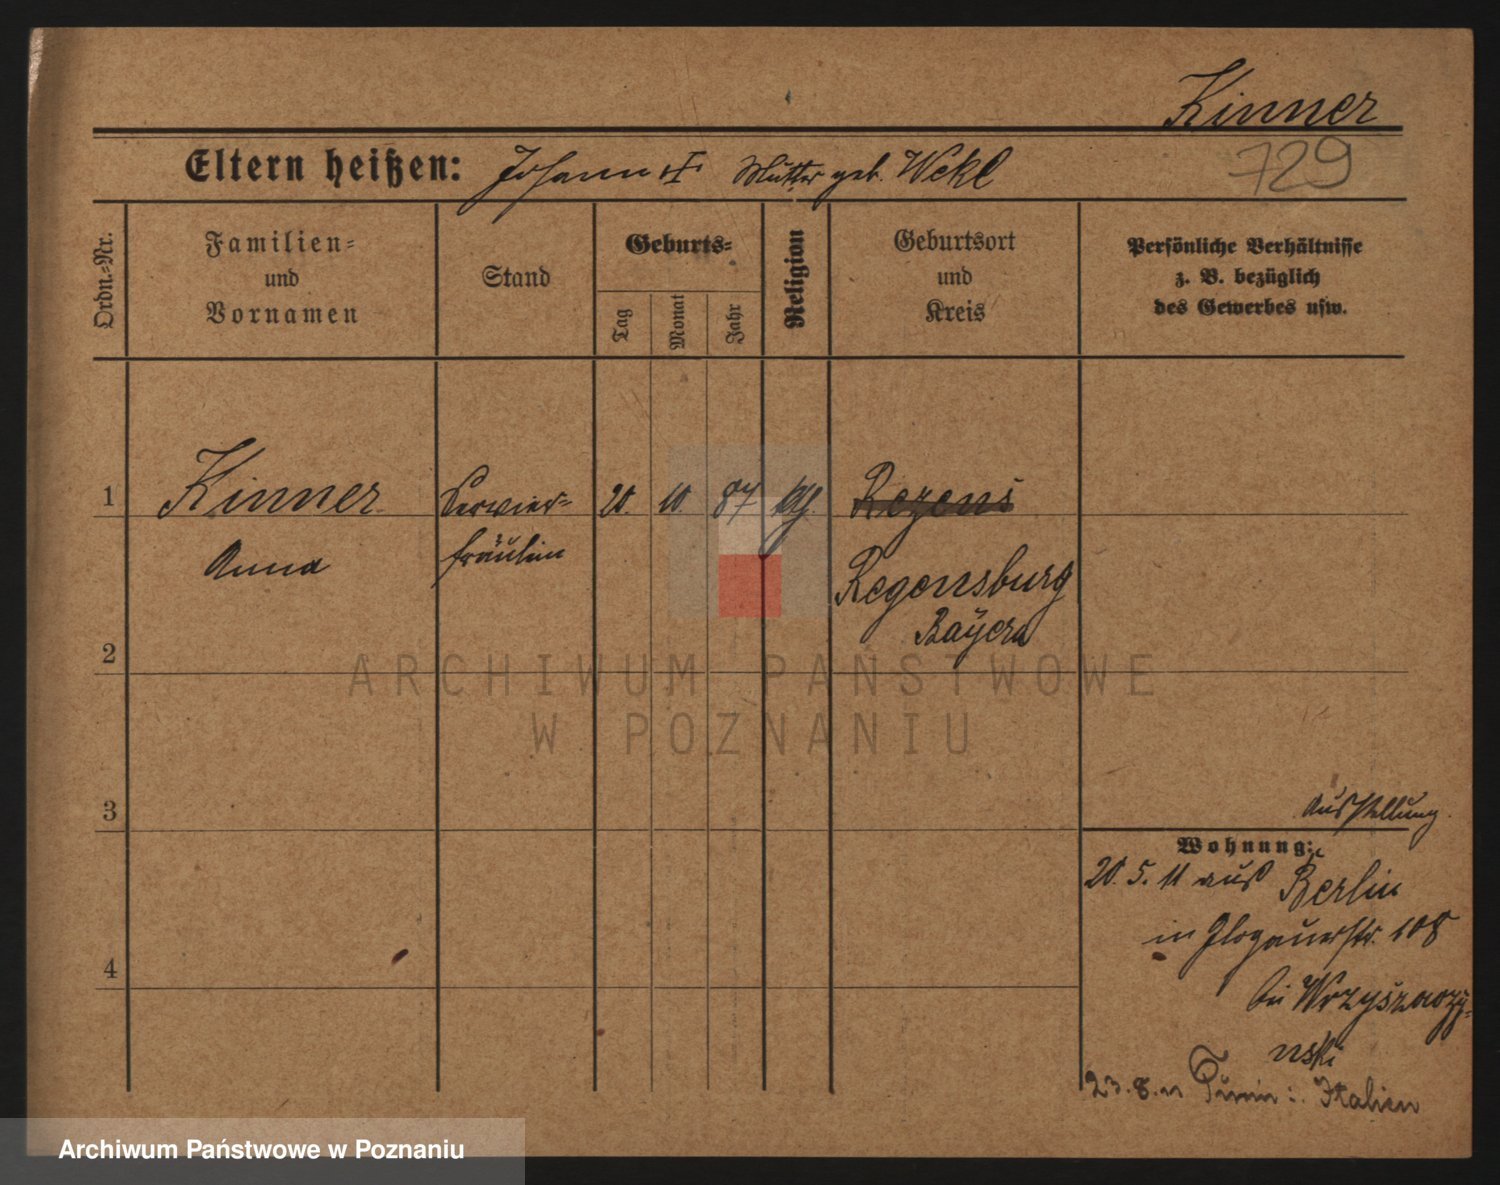 Kinner
Eltern heißen: Johann Mutter geb. Wekl
729
Ordn.-Nr.
Familien-
und
Vornamen
Stand
Geburts-
Tag
Monat
Jahr
Religion
Geburtsort
und
Kreis
Persönliche Verhältnisse
z. B. bezüglich
des Gewerbes usw.
1
Kinner
Anna
Servier-
fräulein
20. 10. 87
Regens
Regensburg
Bayern
2
ARCHIWUM PAŃSTWOWE
W POZNANIU
3
Ausstellung.
Wohnung:
20. 5. 11 aus Berlin
in Glogauerstr. 108
bei Wrzyszczy-
nski
23. 8. 11 Turin i. Italien
4
Archiwum Państwowe w Poznaniu